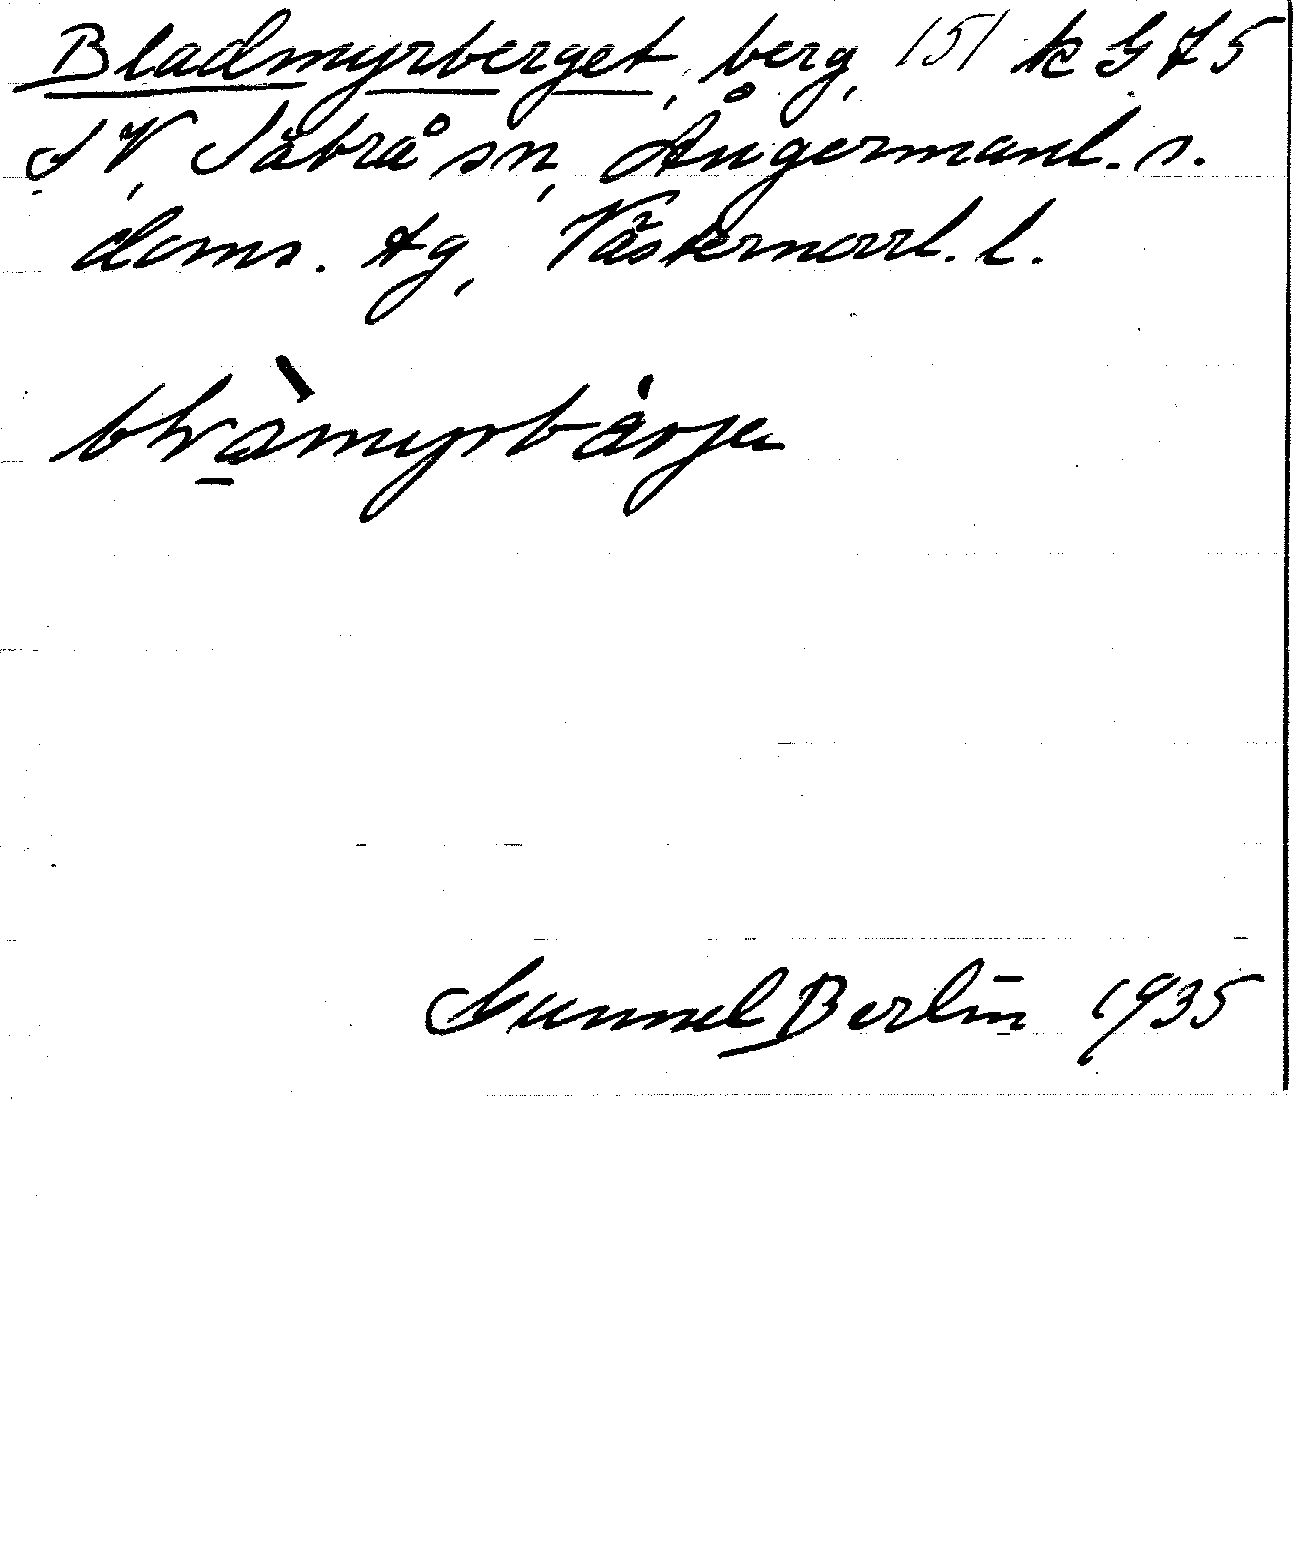 Bladmyrberget, berg, 151 k G 75
SV, Säbrå sn, Ångermanl. s.
doms. tg, Västernorrl. l.
blramyrbärja
Gunnel Berlin 1935